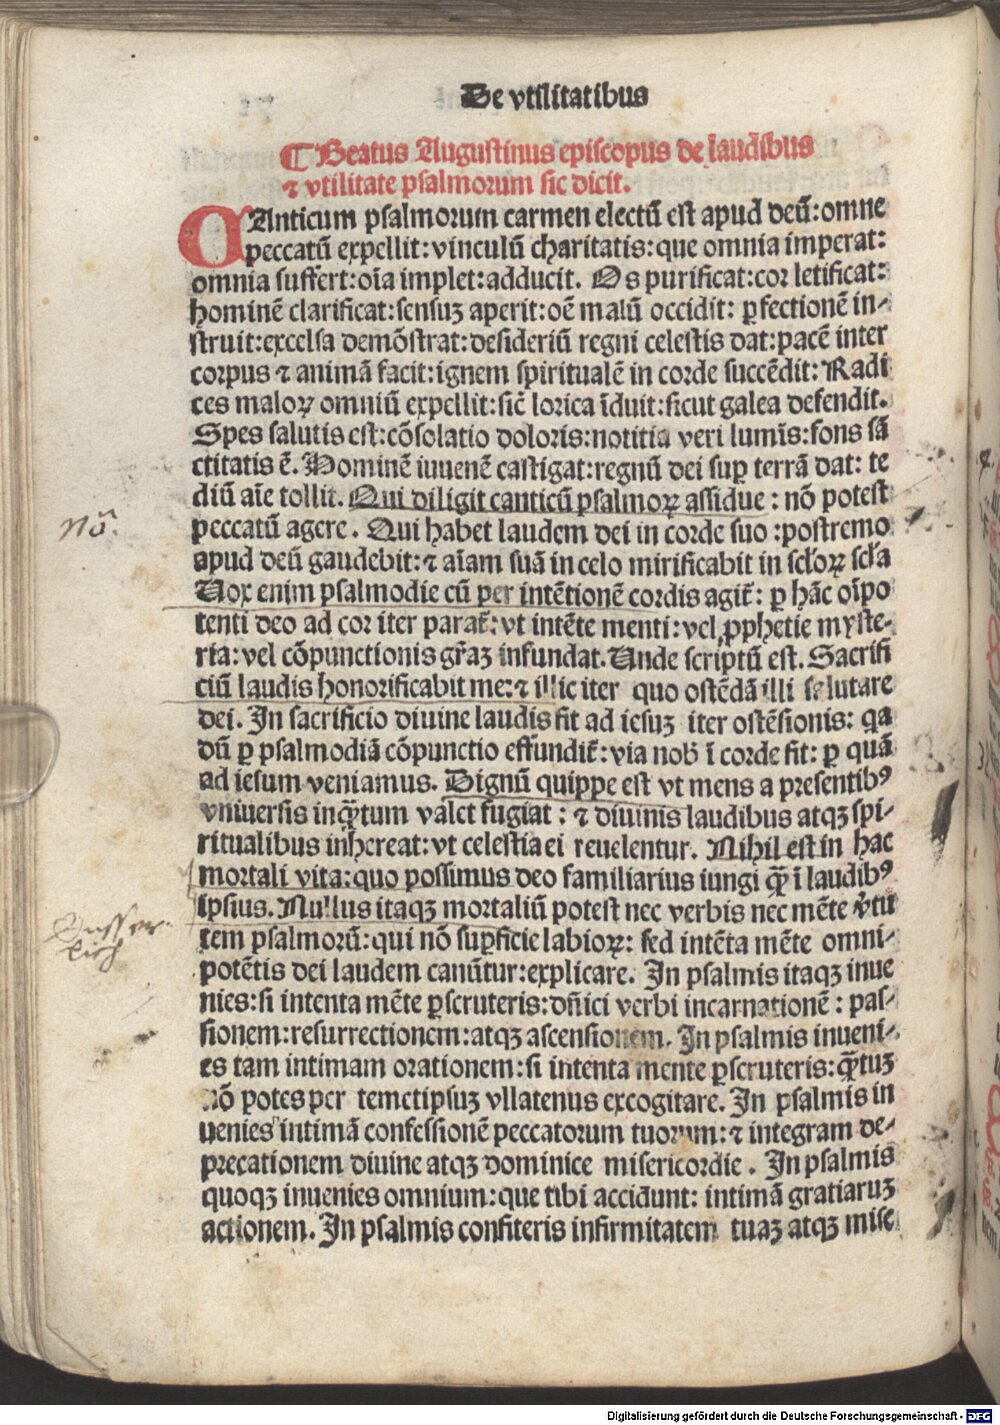 De vtilitatibus
¶ Beatus Augustinus episcopus de laudibus
⁊ vtilitate psalmorum sic dicit.
CAnticum psalmorum carmen electū est apud deū: omne
peccatū expellit: vinculū charitatis: que omnia imperat:
omnia suffert: oīa implet: adducit. Os purificat: cor letificat:
hominē clarificat: sensuꝫ aperit: oē malū occidit: ꝑfectionē in-
struit: excelsa demōstrat: desideriū regni celestis dat: pacē inter
corpus ⁊ animā facit: ignem spiritualē in corde succēdit: Radi
ces maloꝝ omniū expellit: sic̄ lorica īduit: sicut galea defendit.
Spes salutis est: cōsolatio doloris: notitia veri lumīs: fons sā
ctitatis ē. Hominē iuuenē castigat: regnū dei suꝑ terrā dat: te
diū aīe tollit. Qui diligit canticū psalmoꝝ assidue: nō potest
nō.
peccatū agere. Qui habet laudem dei in corde suo: postremo
apud deū gaudebit: ⁊ aīam suā in celo mirificabit in scl̄oꝝ scl̄a
Uox enim psalmodie cū per intētionē cordis agit̄: ꝑ hāc oīpo
tenti deo ad cor iter parat̄: vt intēte menti: vel ꝓphetie myste-
ria: vel cōpunctionis gr̄aꝫ infundat. Unde scriptū est. Sacrifi
ciū laudis honorificabit me: ⁊ illic iter quo ostēdā illi salutare
dei. In sacrificio diuine laudis fit ad iesuꝫ iter ostēsionis: qꝛ
dū ꝑ psalmodiā cōpunctio effundit̄: via nob̄ ī corde fit: ꝑ quā
ad iesum veniamus. Dignū quippe est vt mens a presentibꝰ
vniuersis inq̄ꝫtum valet fugiat: ⁊ diuinis laudibus atqꝫ spi-
ritualibus inhereat: vt celestia ei reuelentur. Nihil est in hac
mortali vita: quo possimus deo familiarius iungi q̄ꝫ ī laudibꝰ
ipsius. Nullus itaqꝫ mortaliū potest nec verbis nec mēte v̓tu
tem psalmorū: qui nō suꝑficie labioꝝ: sed intēta mēte omni-
potētis dei laudem canūtur: explicare. In psalmis itaqꝫ inue
nies: si intenta mēte ꝑscruteris: dn̄ici verbi incarnationē: pas-
sionem: resurrectionem: atqꝫ ascensionem. In psalmis inueni-
es tam intimam orationem: si intenta mente ꝑscruteris: q̄ꝫtuꝫ
nō potes per temetipsuꝫ vllatenus excogitare. In psalmis in
uenies intimā confessionē peccatorum tuorum: ⁊ integram de-
precationem diuine atqꝫ dominice misericordie. In psalmis
quoqꝫ inuenies omnium: que tibi accidunt: intimā gratiaruꝫ
actionem. In psalmis confiteris infirmitatem tuaꝫ atqꝫ mise
Digitalisierung gefördert durch die Deutsche Forschungsgemeinschaft - DFG